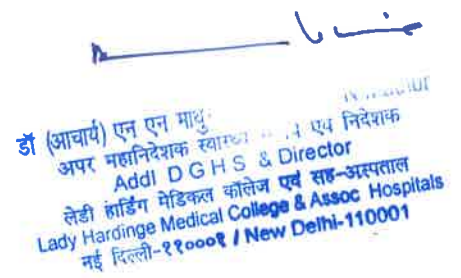 डॉ (आचार्य) एन एन माथु
अपर महानिदेशक स्वास्थ्य एवं निदेशक
Addl D G H S & Director
लेडी हार्डिंग मेडिकल कॉलेज एवं सह-अस्पताल
Lady Hardinge Medical College & Assoc Hospitals
नई दिल्ली-११०००१ / New Delhi-110001